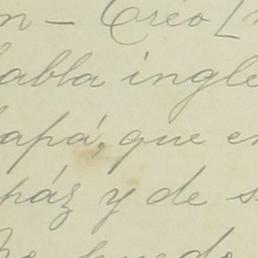 n - Creo
habla ingle
apá, que e
páz y de s
puedo